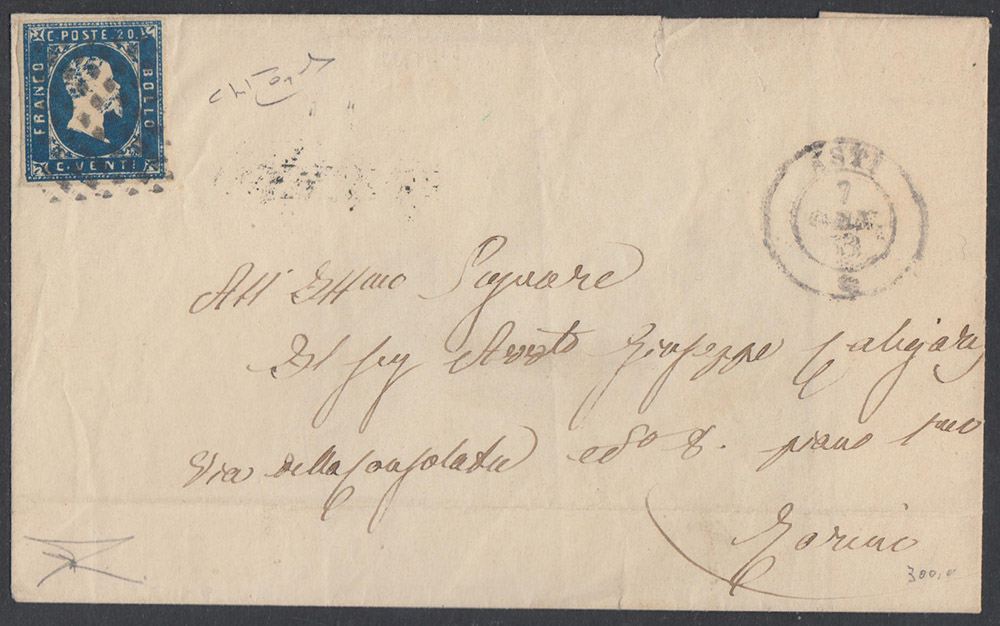 C. POSTE. 20.
FRANCO
BOLLO
C. VENTI
ASTI
7
53
All' Ill.mo Signore
Il Sig Avv.to Giuseppe
Via della Consolata 8. piano 1mo
Torino
300,